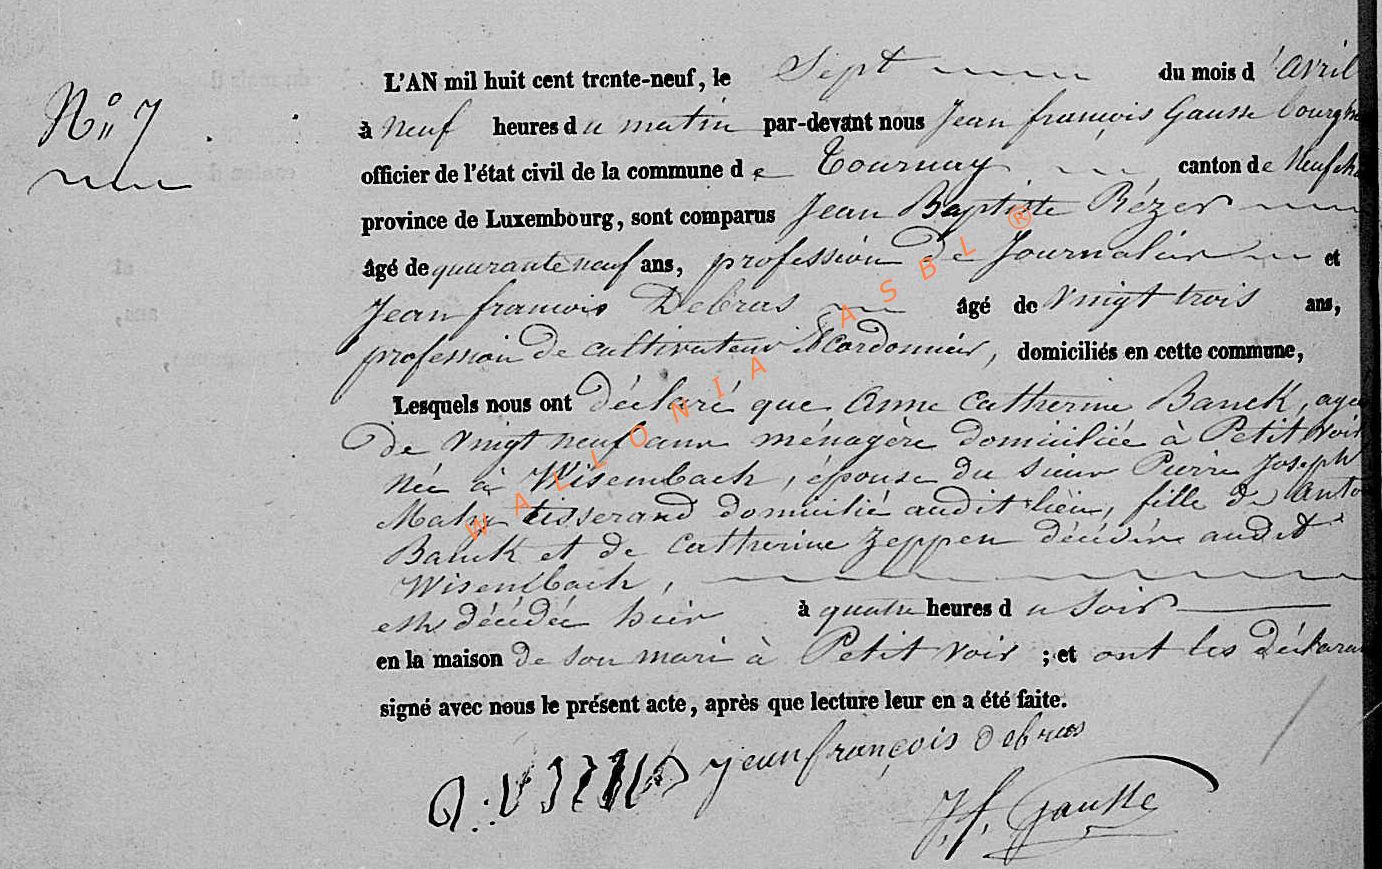 N° 7
L'AN mil huit cent trente-neuf, le Sept du mois d'avril
à neuf heures du matin par-devant nous Jean françois Gausse bourgm
officier de l'état civil de la commune de Tournay canton de Neufch
province de Luxembourg, sont comparus Jean Baptiste Rézer
âgé de quarante neuf ans, profession de Journalier et
Jean francois Debras âgé de vingt trois ans,
profession de cultivateur & Cordonnier, domiciliés en cette commune,
Lesquels nous ont déclaré que Anne Catherine Banck, agée
de vingt neuf ans ménagère domiciliée à Petit voir
née à Wisembach, épouse du sieur Pierre Joseph
tisserand domicilié audit lieu, fille de Anto
Banck et de Catherine Zeppen décédés audit
Wisembach,
est décédée hier à quatre heures du soir
en la maison de son mari à Petit voir ; et ont les Déclara
signé avec nous le présent acte, après que lecture leur en a été faite.
jean françois debras
J. f. Gausse
WALLONIA ASBL ®